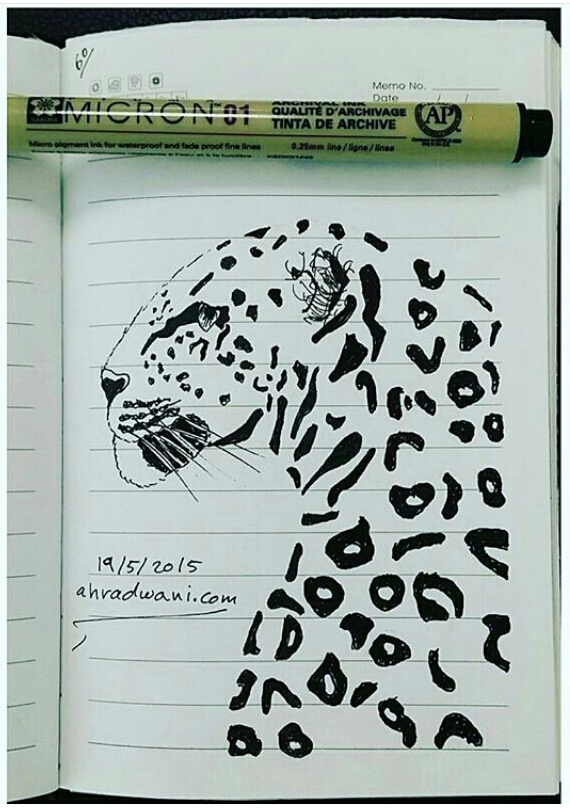 60/
Memo No.
Date / /
MICRON™ 01
ARCHIVAL INK
QUALITÉ D'ARCHIVAGE
TINTA DE ARCHIVE
AP
Micro pigment ink for waterproof and fade proof fine lines
0.25mm line / ligne / línea
19/5/2015
ahradwani.com